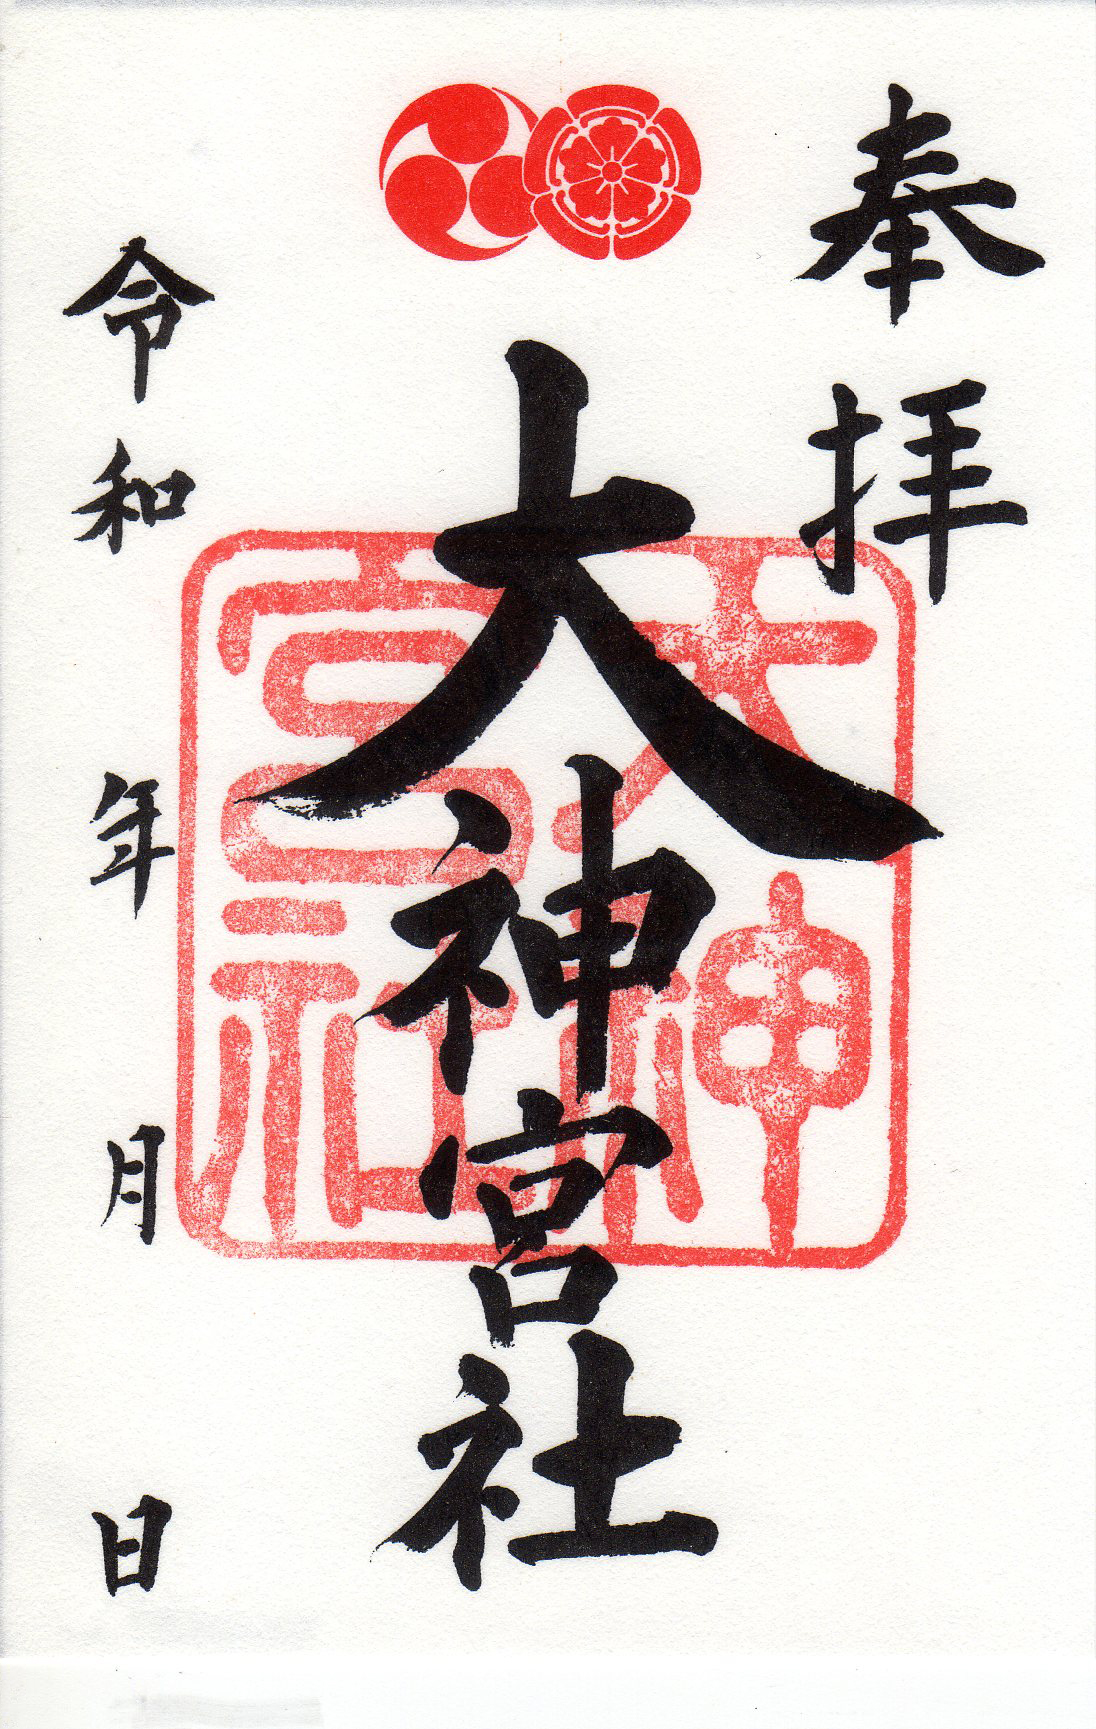 奉拝
大神宮社
大神
宮社
令和 年 月 日